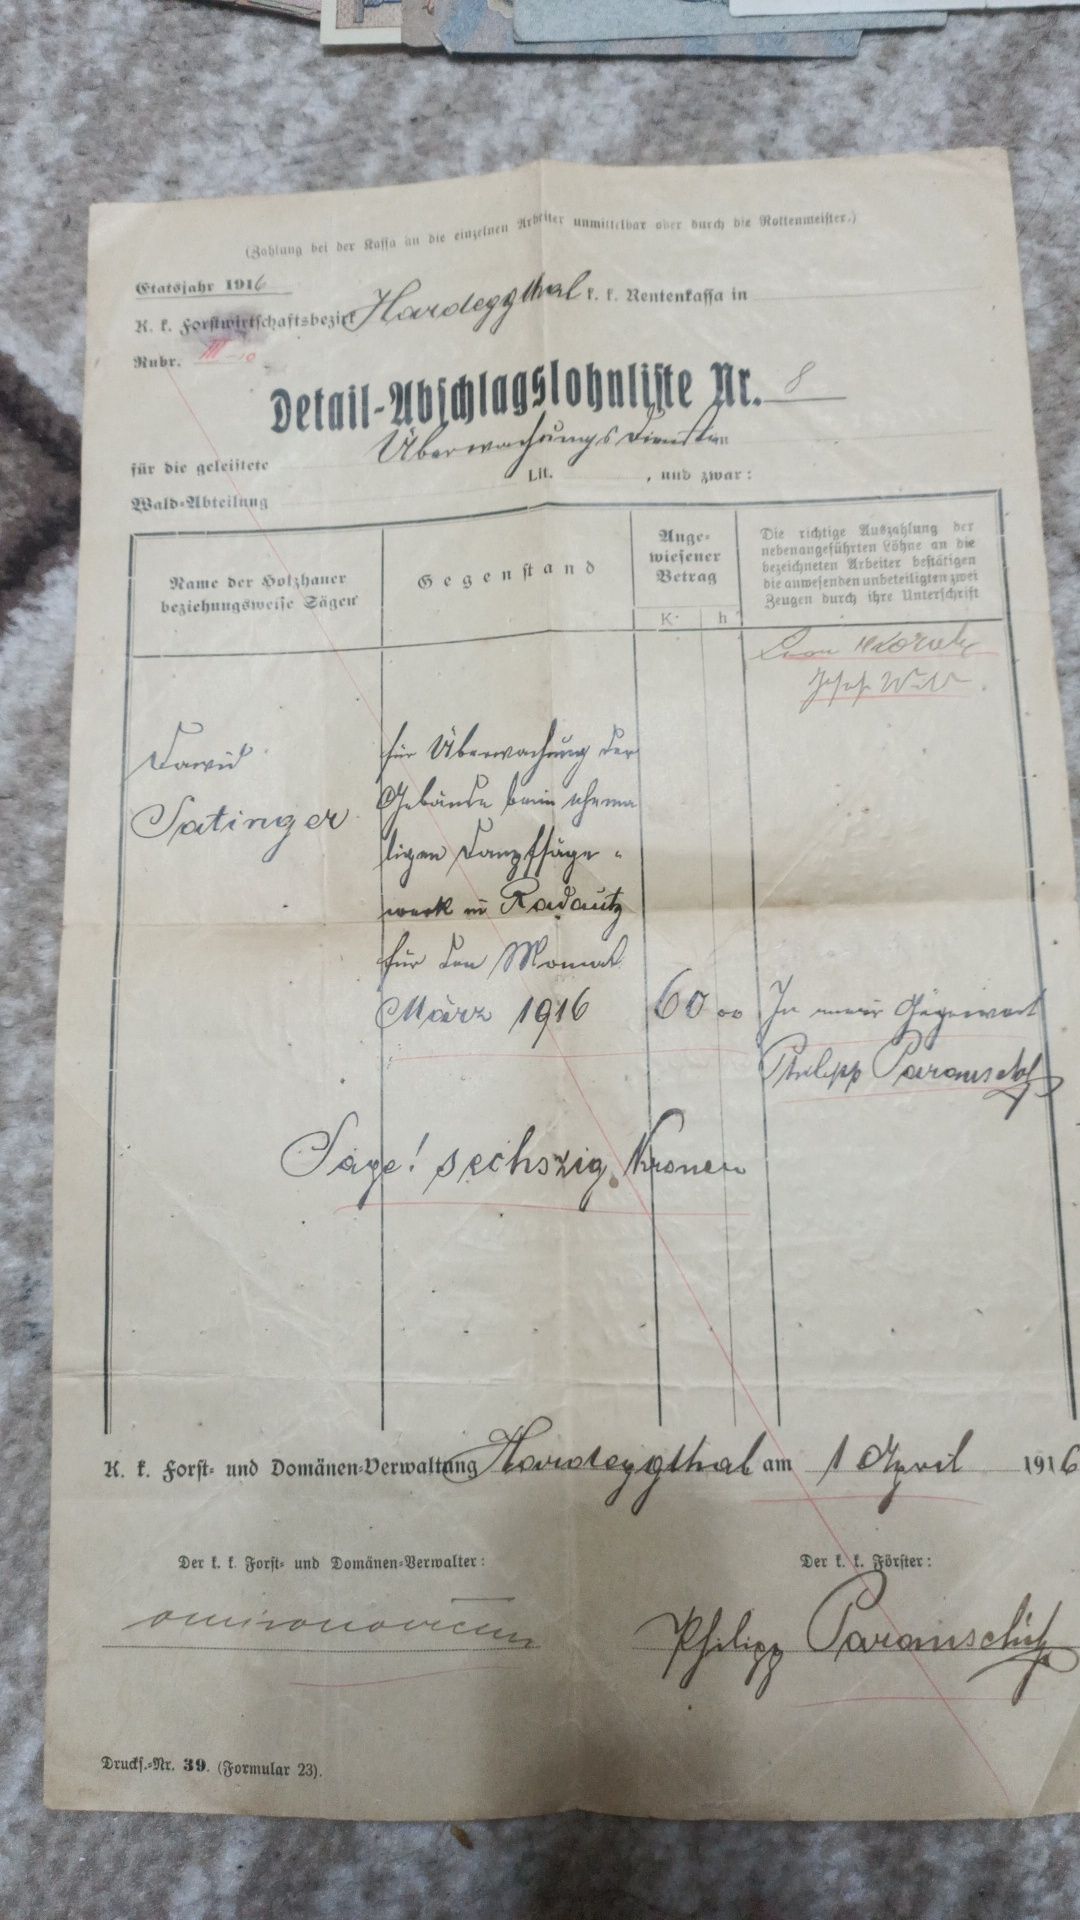 (Zahlung bei der Kassa an die einzelnen Arbeiter unmittelbar oder durch die Rottenmeister.)
Etatsjahr 1916
K. k. Forstwirtschaftsbezirk Hardeggthal k. k. Rentenkassa in
Rubr. III-10
Detail-Abschlagslohnliste Nr. 8
für die geleistete Überwachungsdienste in
Wald-Abteilung Lit. , und zwar:
Name der Holzhauer
beziehungsweise Sägen
Gegenstand
Ange-
wiesener
Betrag
K h
Die richtige Auszahlung der
nebenangeführten Löhne an die
bezeichneten Arbeiter bestätigen
die anwesenden unbeteiligten zwei
Zeugen durch ihre Unterschrift
Josef
David
Satinger
für Überwachung der
Gebäude beim ehema
ligen Dampfsäge-
werk in Radautz
für den Monat
März 1916
60 00
In meiner Gegenwart
Philipp Paranschütz
Sage! sechszig Kronen
K. k. Forst- und Domänen-Verwaltung Hardeggthal am 1 April 1916
Der k. k. Forst- und Domänen-Verwalter:
Der k. k. Förster:
Philipp Paranschütz
Drucks.-Nr. 39. (Formular 23).